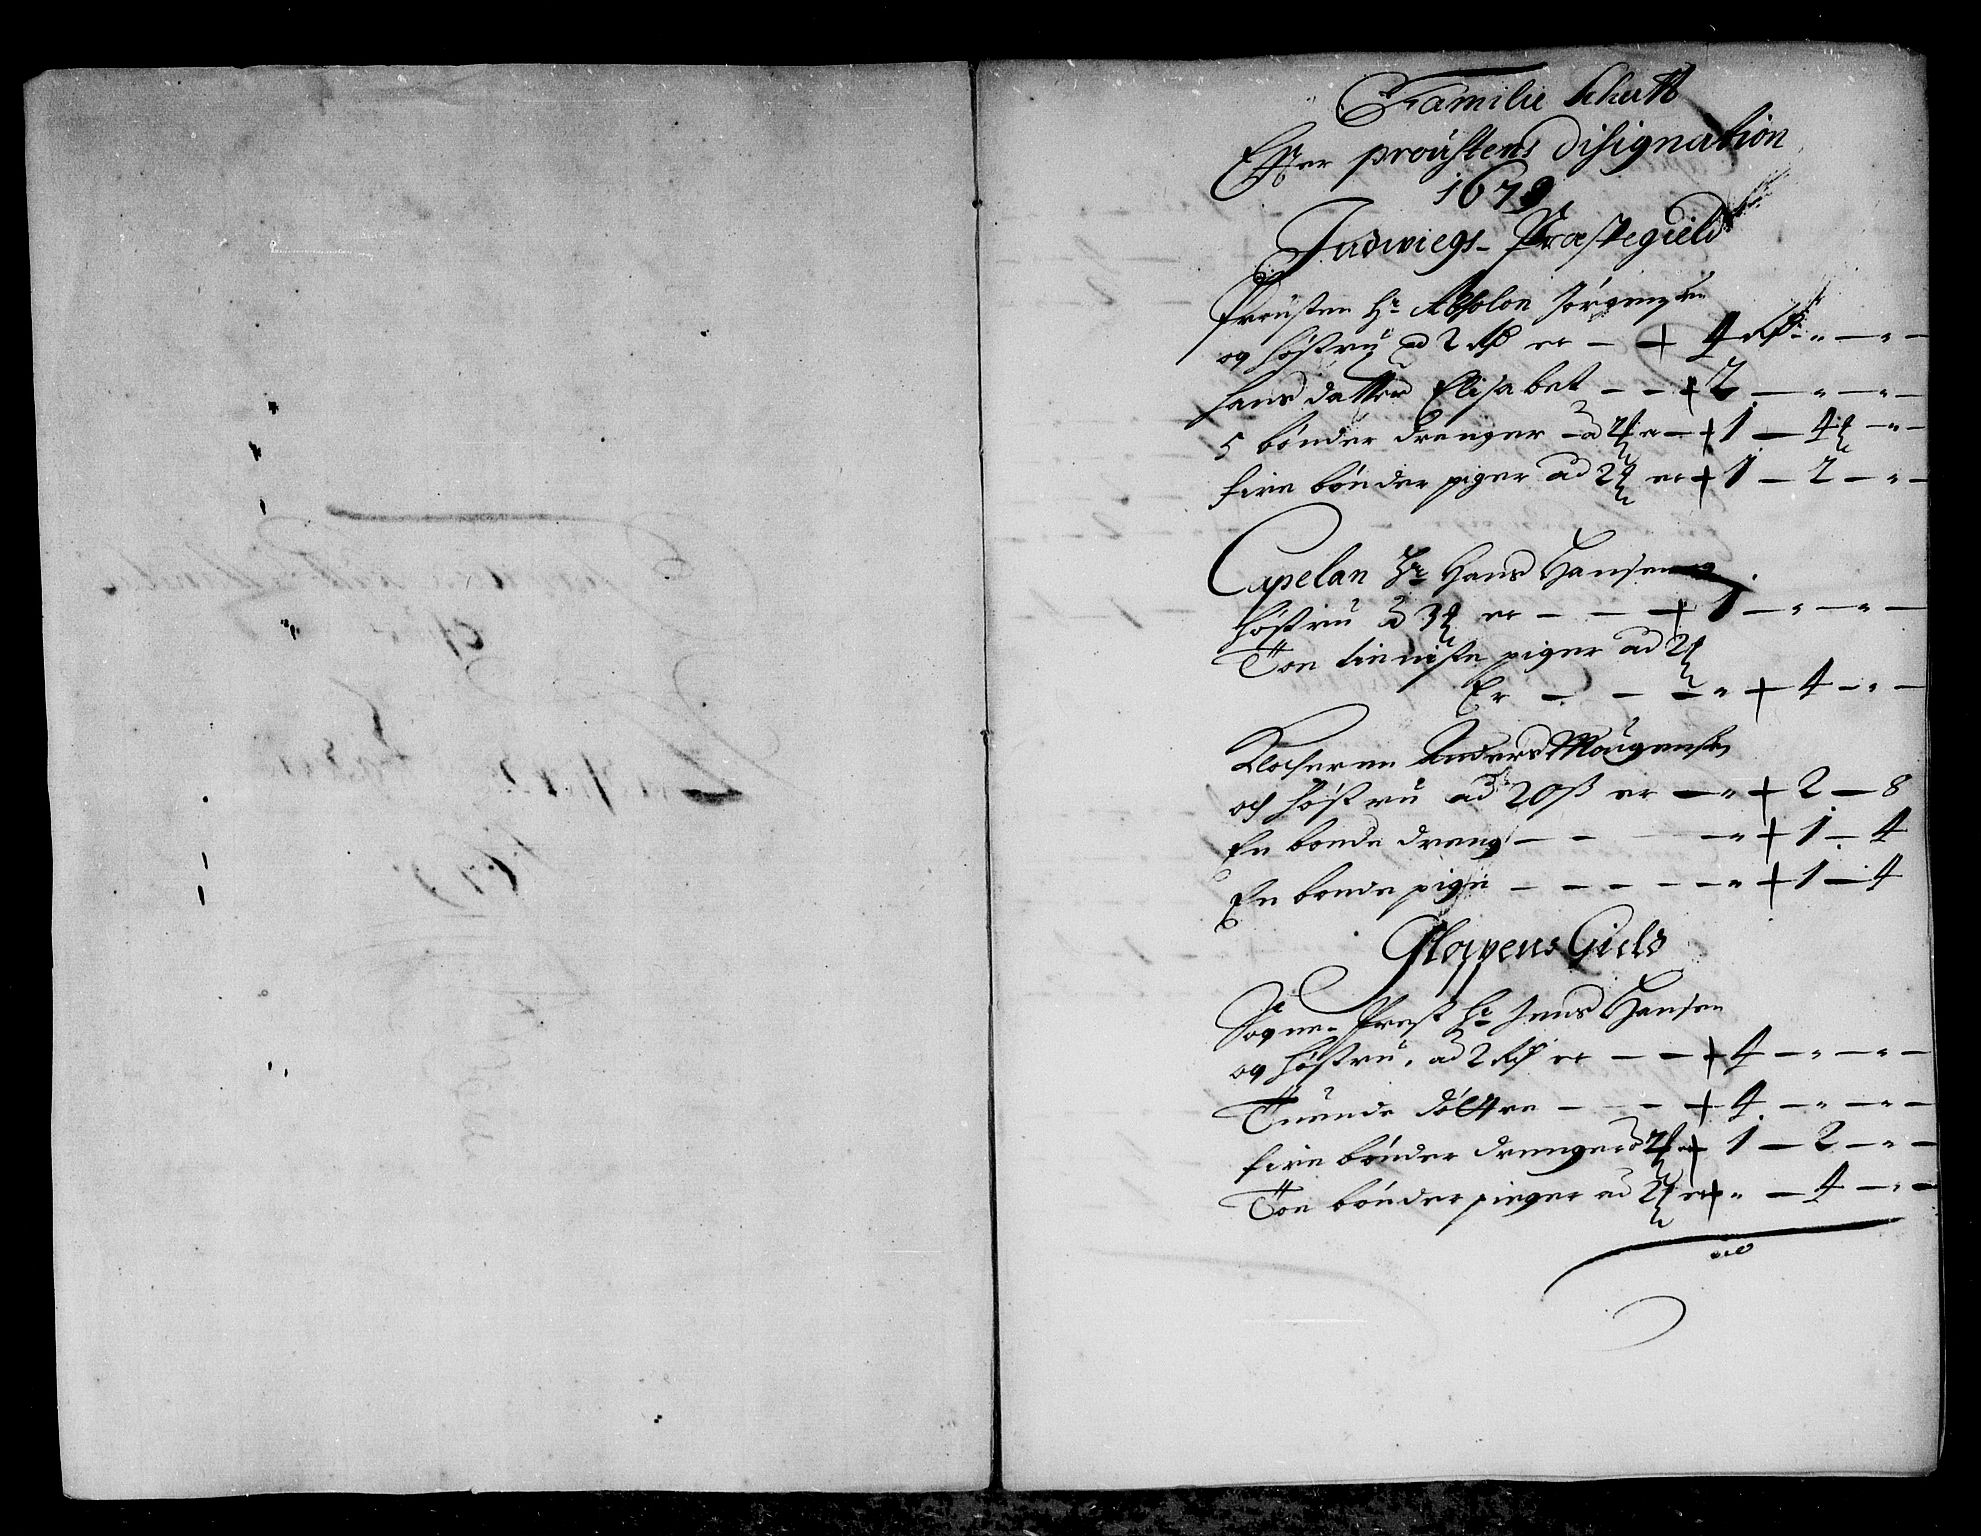 Familie Schatt
Effter proustens Disignation
1679
Indwiegs- Præstegield
Prousten Hr Absolon Jørgensen
og høstru ad 2 Rd er - + 4 Rd - " - " -
hans datter Elisabet - - + 2 - " - " -
5 bønder drenger ad 2 er - + 1 - 4 - " -
fire bønder piger ad 2 er + 1 - 2 - " -
Capelan Hr Hans Hansen og
høstru ad 3 er - - - + 1 - " - " -
Toe tieniste piger ad 2
Er - - - " + 4 - " -
Klockeren Anders Mougensen
och høstru ad 20 ß er - " + 2 - 8
En bonde dreng - - - " + 1 - 4
En bonde pige - - - - - " + 1 - 4
Gloppens Gield
Sogne-Prest Hr Jens Hansen
og høstru, ad 2 Rd er - - + 4 - " - " -
Tuende døttre - - - + 4 - " - " -
fire bønder drenger ad 2 er + 1 - 2 - " -
Toe bønder pieger ad 2 er + " - 4 - " -